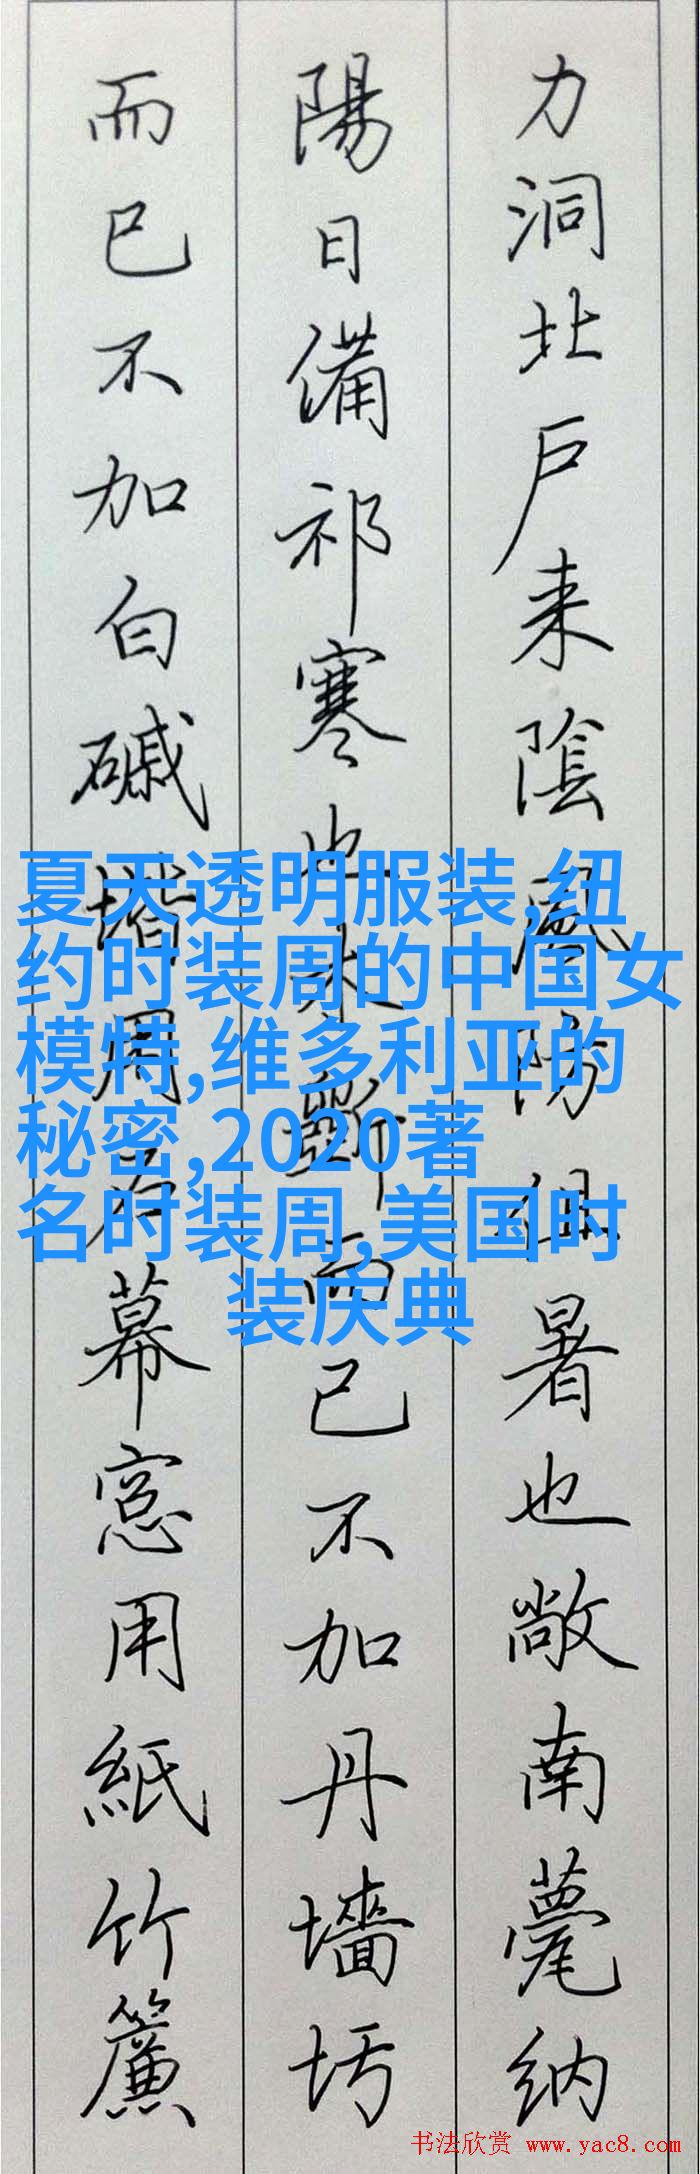 力洞北戶来陰風防徂暑也敞南甍納
陽日備祁寒也木斲而已不加丹墻圬
而已不加白磩堦用石幕窓用紙竹簾
夏天透明服装,纽
约时装周的中国女
模特,维多利亚的
秘密,2020著
名时装周,美国时
装庆典
书法欣赏 www.yac8.com